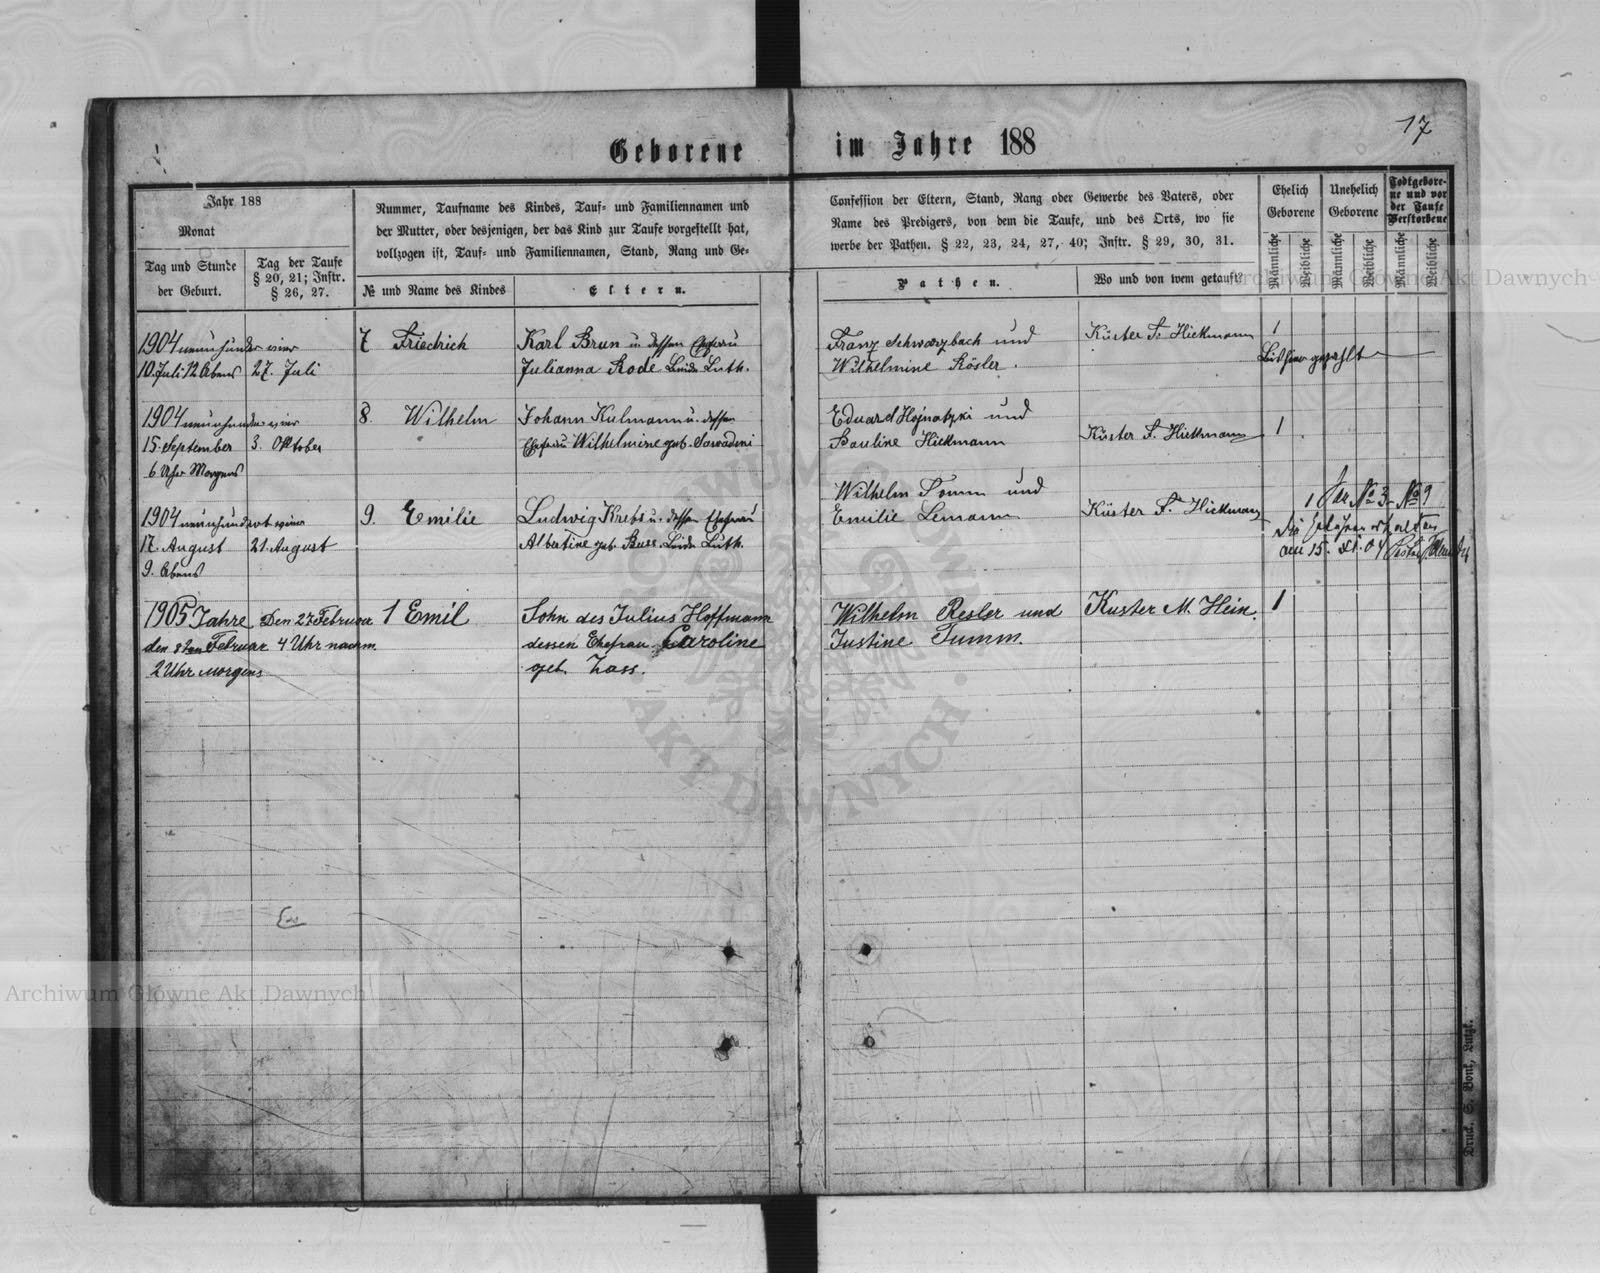 17
Geborene im Jahre 188
Jahr 188
Monat
Tag und Stunde
der Geburt.
Tag der Taufe
§ 20, 21; Instr.
§ 26, 27.
Nummer, Taufname des Kindes, Tauf- und Familiennamen und
der Mutter, oder desjenigen, der das Kind zur Taufe vorgestellt hat,
vollzogen ist, Tauf- und Familiennamen, Stand, Rang und Ge-
№ und Name des Kindes
Eltern.
Confession der Eltern, Stand, Rang oder Gewerbe des Vaters, oder
Name des Predigers, von dem die Taufe, und des Orts, wo sie
werbe der Pathen. § 22, 23, 24, 27, 40; Instr. § 29, 30, 31.
Pathen.
Wo und von wem getauft?
Ehelich
Geborene
Unehelich
Geborene
Todtgebore-
ne und vor
der Taufe
Verstorbene
Männliche
Weibliche
Männliche
Weibliche
Männliche
Weibliche
1904 neunhundert vier
10 Juli 12 Abens
27. Juli
7 Friedrich
Karl Brun u dessen Ehefrau
Julianna Rode Beide Luth.
Franz Schwarzbach und
Wilhelmine Rösler.
Küster F. Hickmann
1
Bis hier gezahlt
1904 neunhundert vier
15. September
6 Uhr Morgens
3. Oktober
8. Wilhelm
Johann Kulmann u. dessen
Ehefrau Wilhelmine geb.
Eduard und
Pauline Hickmann
Küster F. Hickmann
1
1904 neunhundert vier
17. August
9. Abens
21. August
9. Emilie
Ludwig Krebs u. dessen Ehefrau
Albertine geb. Beide Luth.
Wilhelm Tomm und
Emilie Lemann
Küster F. Hickmann
1
№ 3 - № 9
Die Gebühren erhalten
am 15. XI. 04 Pastor
1905 Jahre
den 8ten Februar
2 Uhr Morgens
Den 27 Februar
4 Uhr nachm.
1 Emil
Sohn des Julius Hoffmann
dessen Ehefrau Caroline
geb. Zass.
Wilhelm Resler und
Justine Tumm.
Kuster M. Hein.
1
Druck. S. Bonk, Lutzk.
Archiwum Główne Akt Dawnych
Archiwum Główne Akt Dawnych
ARCHIWUM GŁÓWNE
AKT DAWNYCH